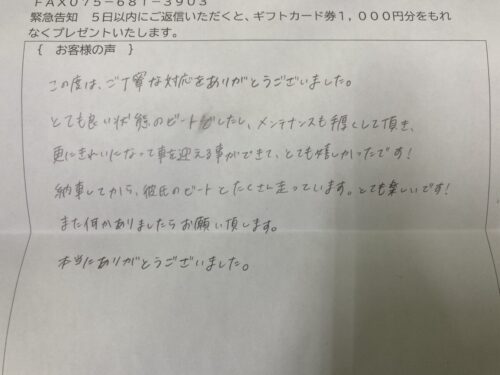 FAX075-681-3903
緊急告知 5日以内にご返信いただくと、ギフトカード券1,000円分をもれ
なくプレゼントいたします。
{ お客様の声 }
この度は、ご丁寧な対応をありがとうございました。
とても良い状態のビートでしたし、メンテナンスも手厚くして頂き、
更にきれいになって車を迎える事ができて、とても嬉しかったです!
納車してから、彼氏のビートとたくさん走っています。とても楽しいです!
また何かありましたらお願い頂します。
本当にありがとうございました。